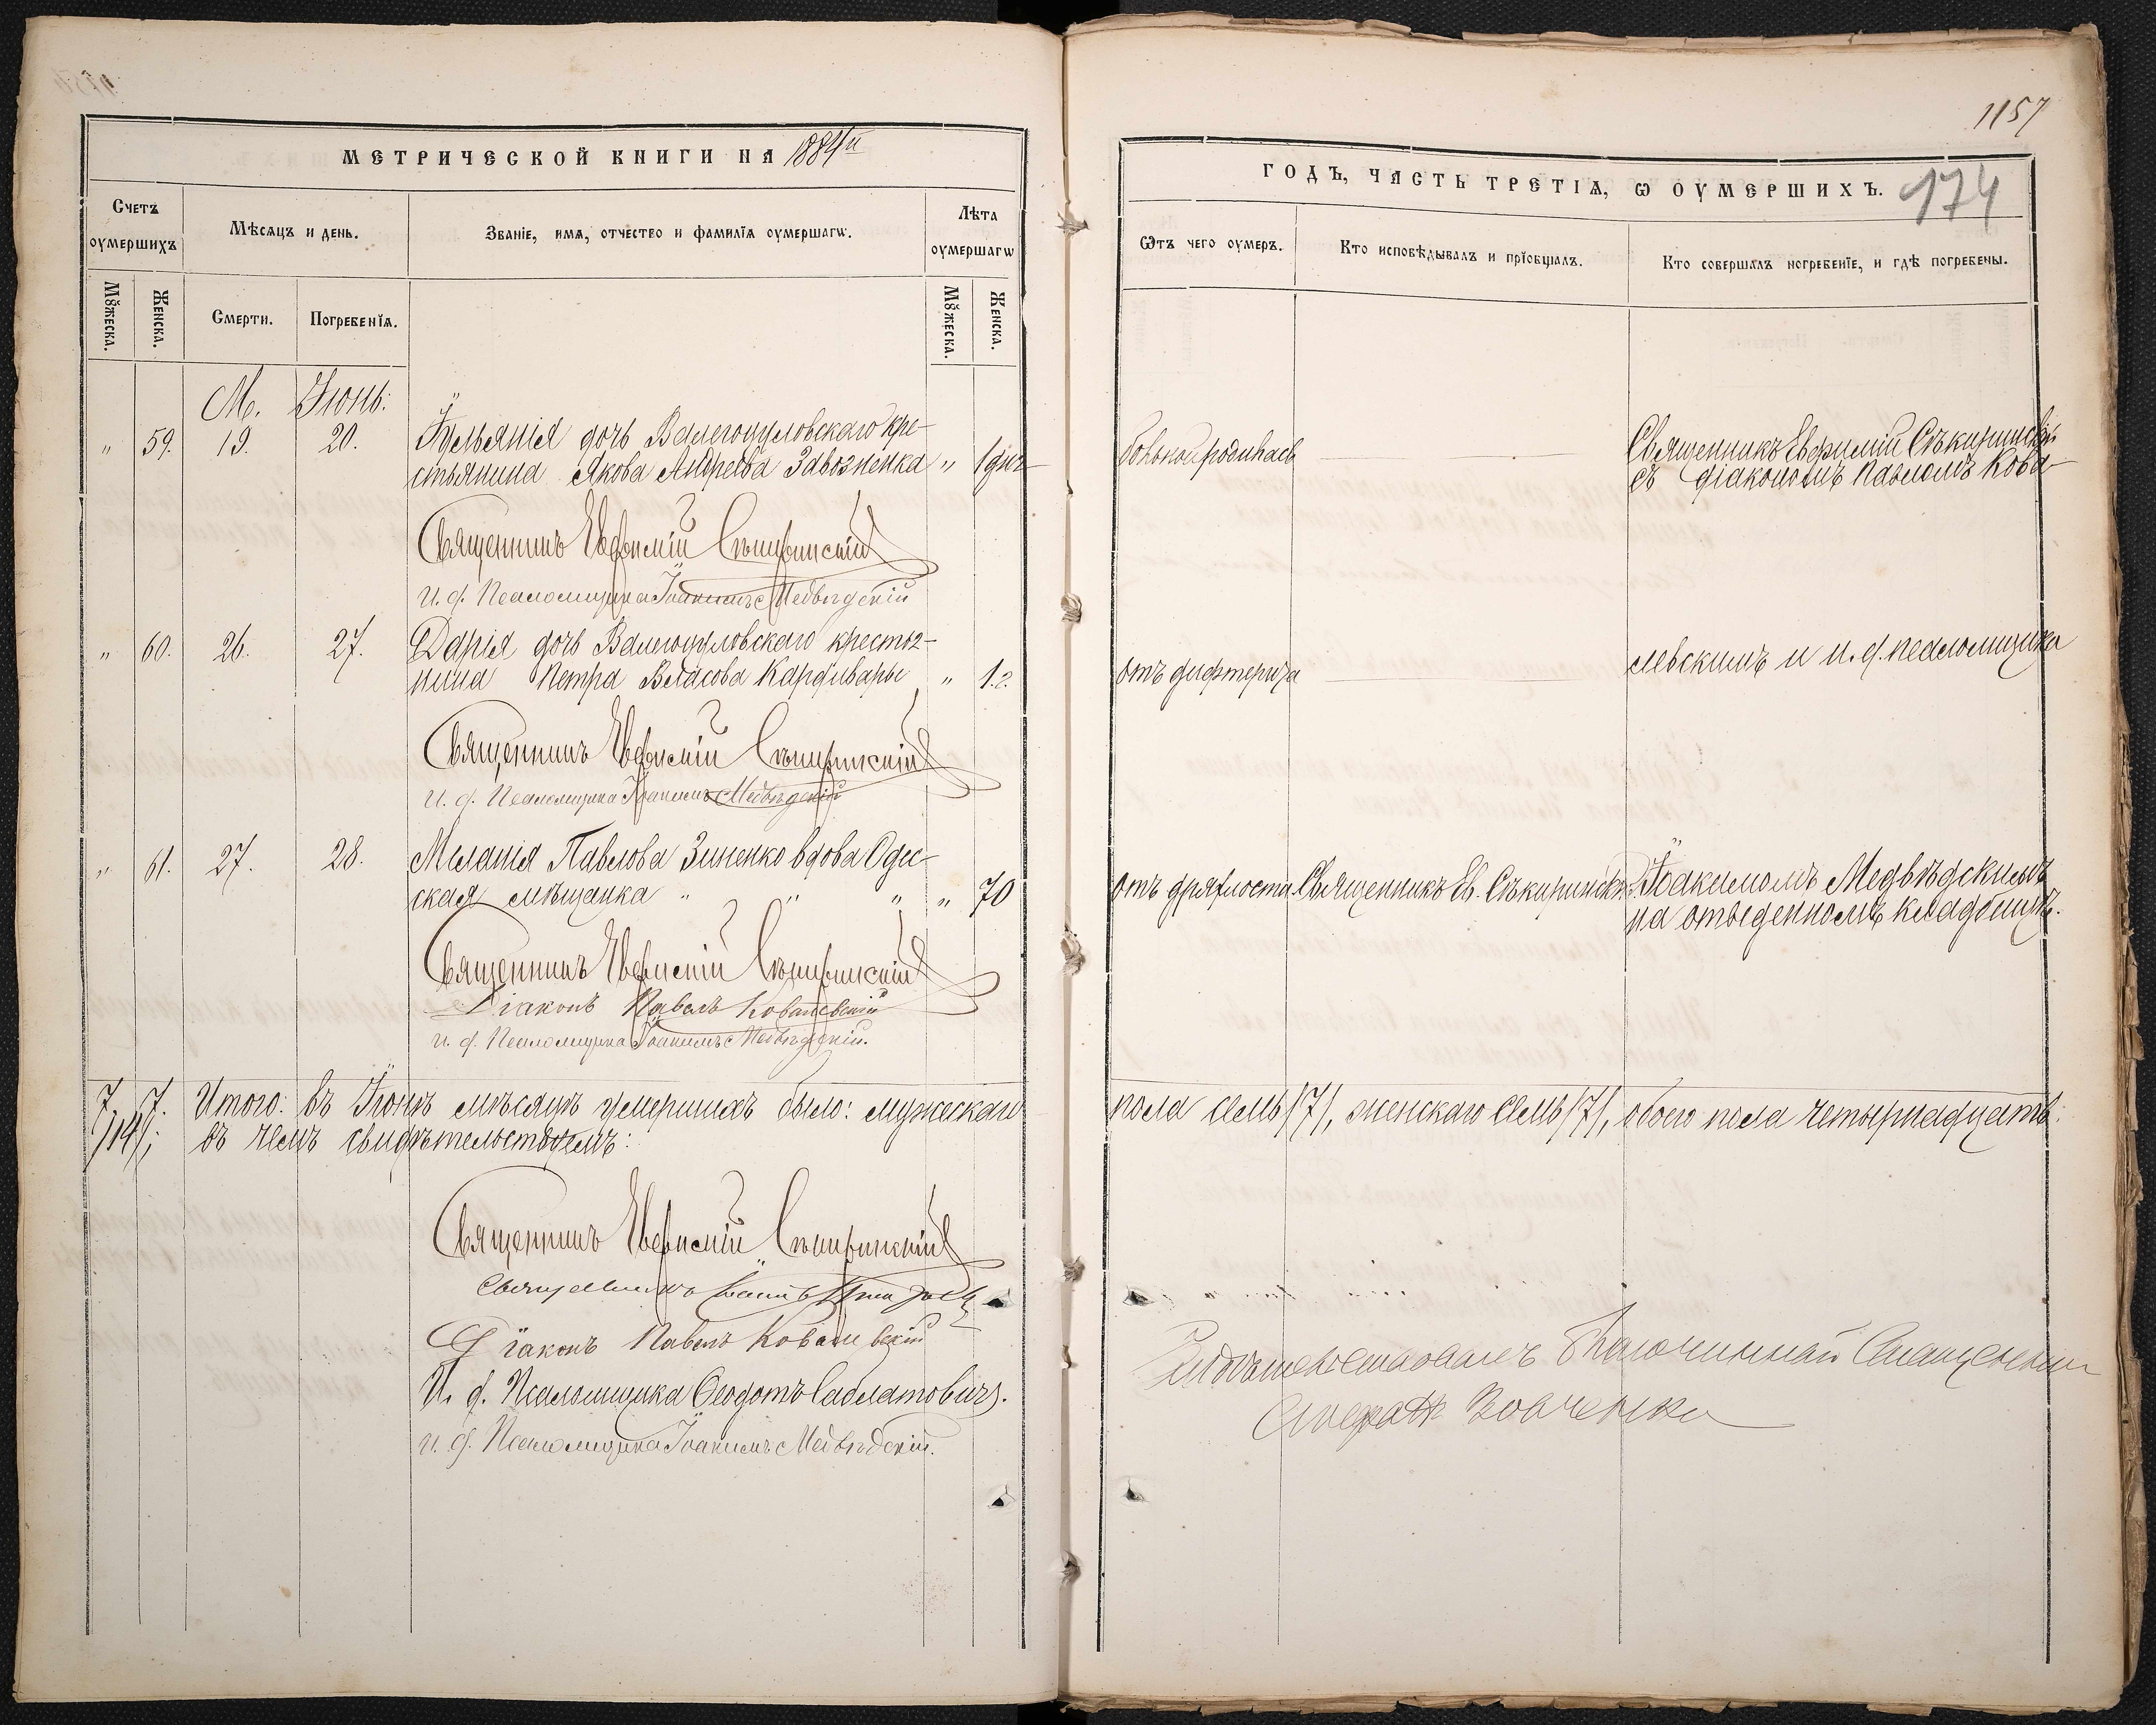 МЕТРИЧЕСКОЙ КНИГИ НА 1884й
Счетъ оумершихъ
Мѣсяцъ и день.
Званіе, имя, отчество и фамилія оумершагѡ.
Лѣта оумершагѡ
Мꙋжеска.
Женска.
Смерти.
Погребенія.
Мꙋжеска.
Женска.
М. Іюнь.
" 59. 19. 20. Іульянія дочь Валегоцуловскаго кре-
стьянина Якова Андреева Завозненка " 1 дня
Священникъ Евфимій Сѣкиринскій
и. д. Псаломщика Іоакимъ Медвѣдскій
" 60. 26. 27. Дарія дочь Валегоцуловскаго крестья-
нина Петра Власова Кардивары " 1 г.
Священникъ Евфимій Сѣкиринскій
и. д. Псаломщика Іоакимъ Медвѣдскій
" 61. 27. 28. Меланія Павлова Зиненко вдова Одес-
ская мѣщанка " " " " 70
Священникъ Евфимій Сѣкиринскій
Діаконъ Павелъ Ковалевскій
и. д. Псаломщика Іоакимъ Медвѣдскій.
7 7. Итого: въ Іюнѣ мѣсяцѣ умершихъ было: мужескаго
/14/; въ чемъ свидѣтельствуемъ:
Священникъ Евфимій Сѣкиринскій
Священникъ
Діаконъ Павелъ Ковалевскій
И. д. Псаломщика Ѳеодотъ Саблатовичъ.
и. д. Псаломщика Іоакимъ Медвѣдскій.
1157
ГОДЪ, ЧАСТЬ ТРЕТІЯ, Ѡ ОУМЕРШИХЪ.
174
Ѿтъ чего оумеръ.
Кто исповѣдывалъ и пріобщалъ.
Кто совершалъ погребеніе, и гдѣ погребены.
больной родилась
Священникъ Евфимій Сѣкиринскій
съ діакономъ Павломъ Кова-
отъ дифтерита
левскимъ и и. д. псаломщика
отъ дряхлости Священникъ Ев. Сѣкиринскій. Іоакимомъ Медвѣдскимъ
на отведенномъ кладбищѣ.
пола семь /7/, женскаго семь /7/, обоего пола четырнадцать:
Свидѣтельствовалъ Благочинный Священникъ
Вовченко